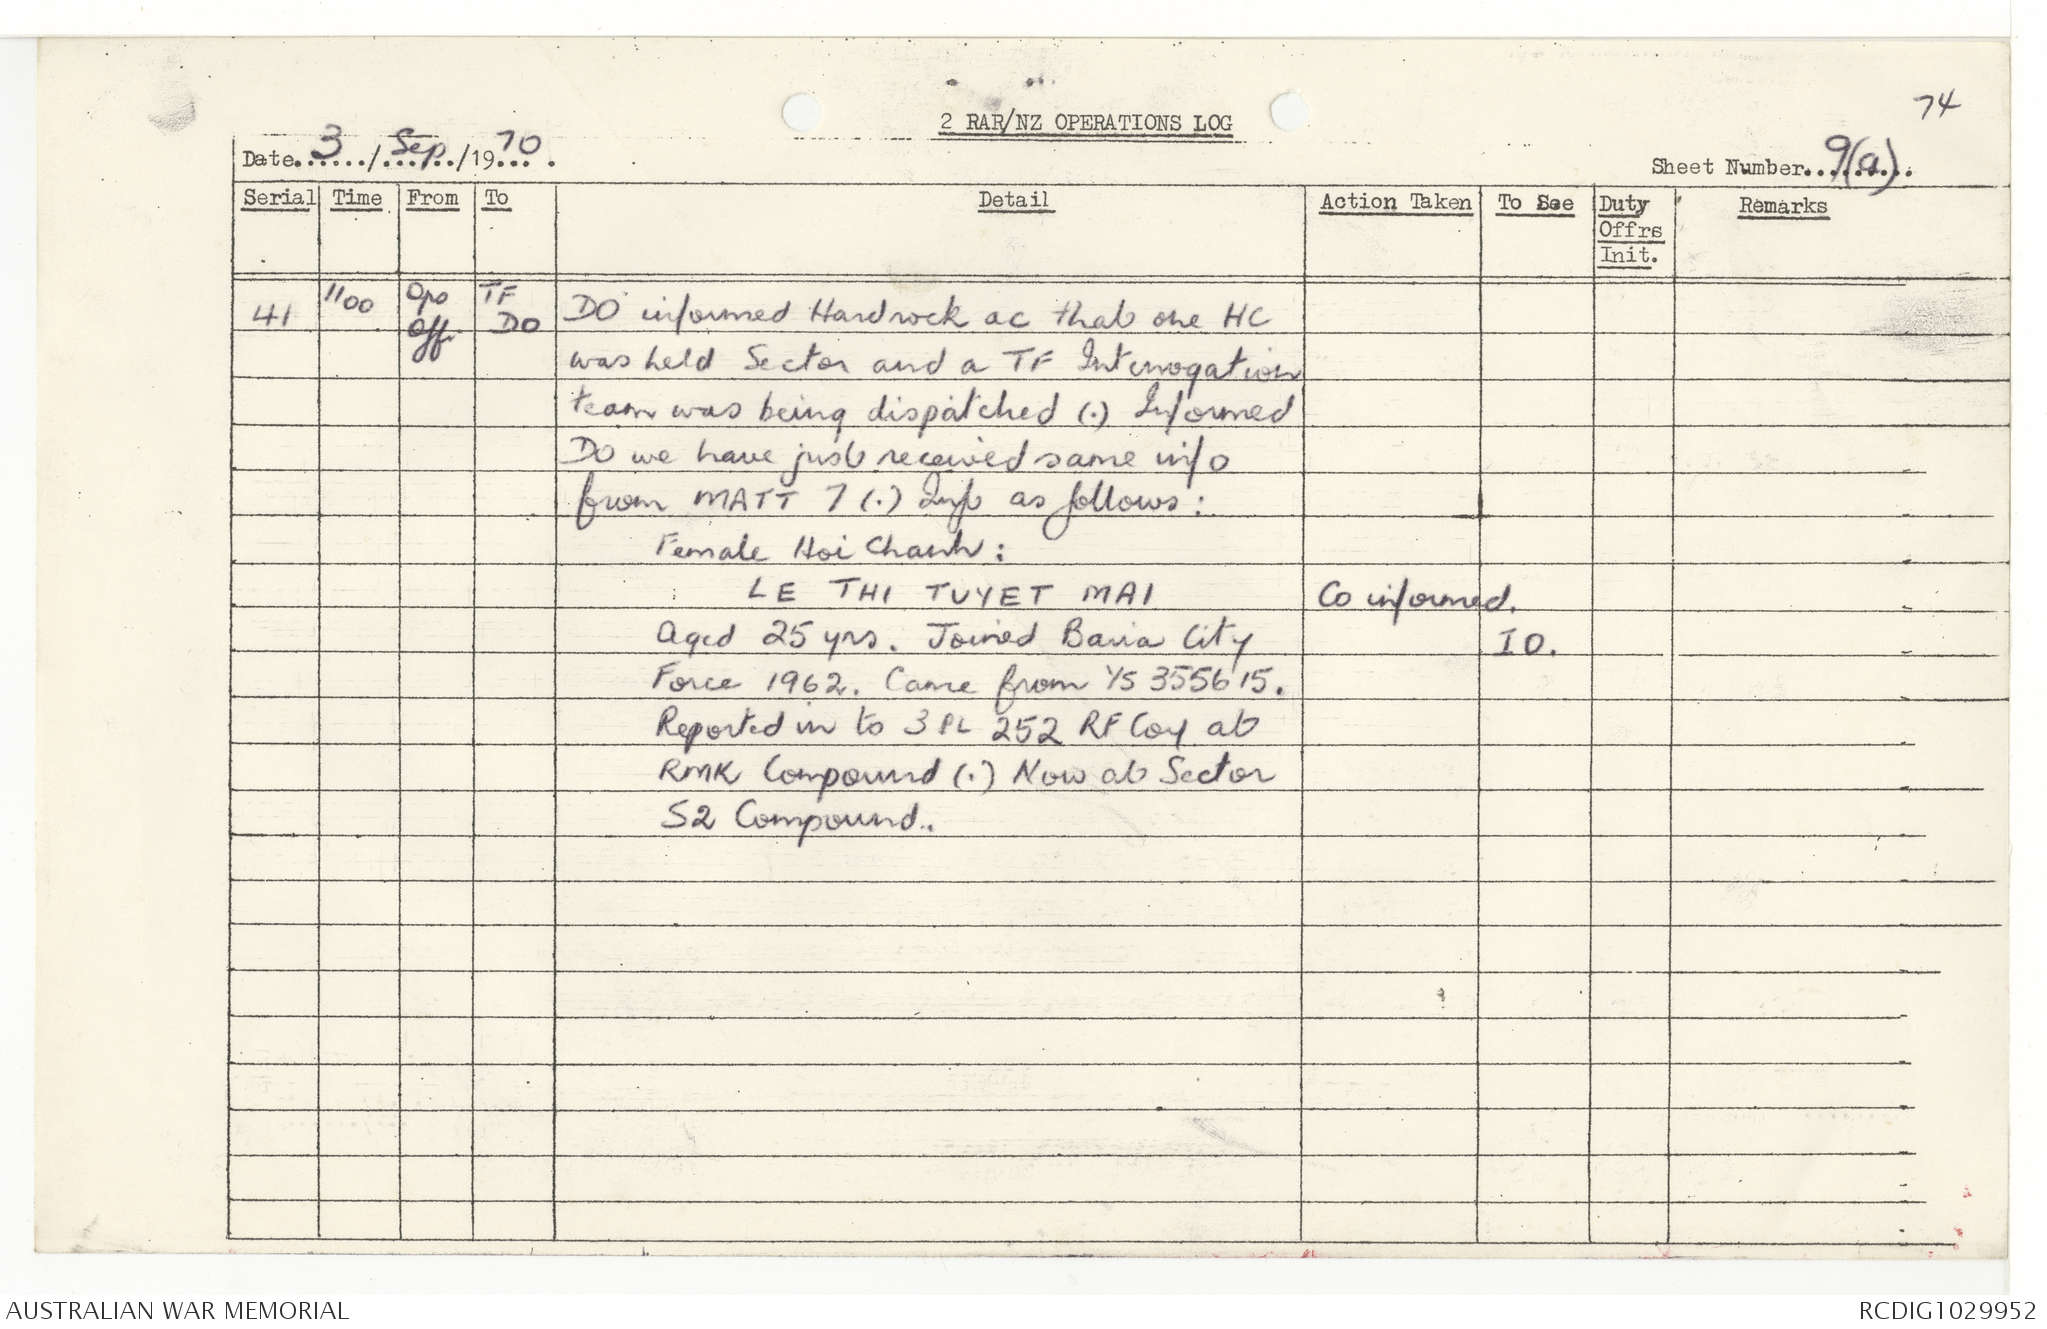 74
2 RAR/NZ OPERATIONS LOG
Date 3 / Sep / 1970.
Sheet Number 9(a)
Serial Time From To Detail Action Taken To See Duty Offrs Init. Remarks
41 1100 Ops Off. TF DO DO informed Hardrock ac that one HC
was held Sector and a TF Interrogation
team was being dispatched (.) Informed
DO we have just received same info
from MATT 7 (.) Info as follows:
Female Hoi Chanh:
LE THI TUYET MAI Co informed.
Aged 25 yrs. Joined Baria City IO.
Force 1962. Came from YS 355615.
Reported in to 3 PL 252 RF Coy at
RMK Compound (.) Now at Sector
S2 Compound.
AUSTRALIAN WAR MEMORIAL
RCDIG1029952